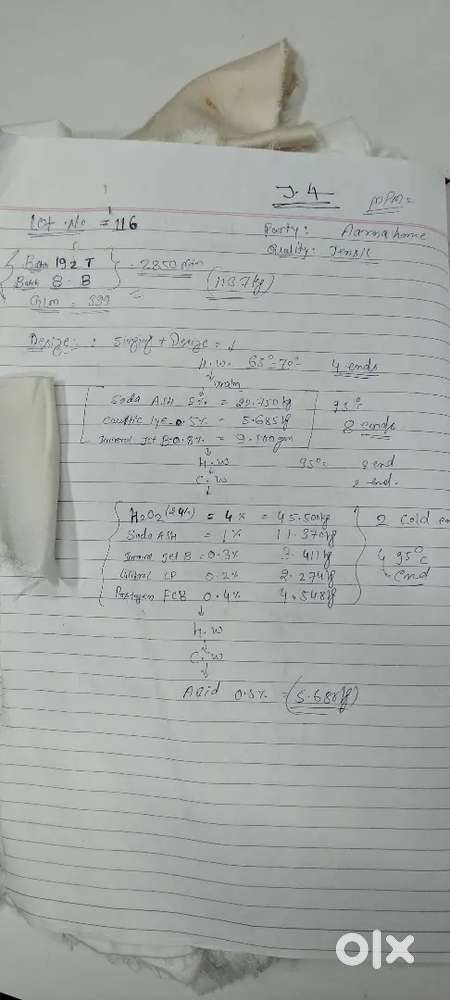 J.4
MPM =
Lot No = 116
Party: Aarna home
Quality:
Batch 192 T
Batch 8 - B
2850 mtr
(1137 kg)
Glm = 399
Desize: : Singing + Desize = ↓
H.W. 65°-70° 4 ends
↓
Soda ASH 2% = 22.750 kg
Caustic lye - 0.5% - 5.685 kg
Jet B - 0.8% = 9.100 gm
95°c
8 ends
↓
H.W 95° 2 end
↓
C.W 2 end.
↓
H2O2 = 4% = 45.500 kg
Soda ASH = 1% 11.370 kg
Jet B = 0.3% 3.411 kg
CP 0.2% 2.274 kg
FCB 0.4% 4.548 kg
2 Cold
4 95°c
End
↓
H.W
↓
C.W
↓
Acid 0.5% = (5.685 kg)
olx